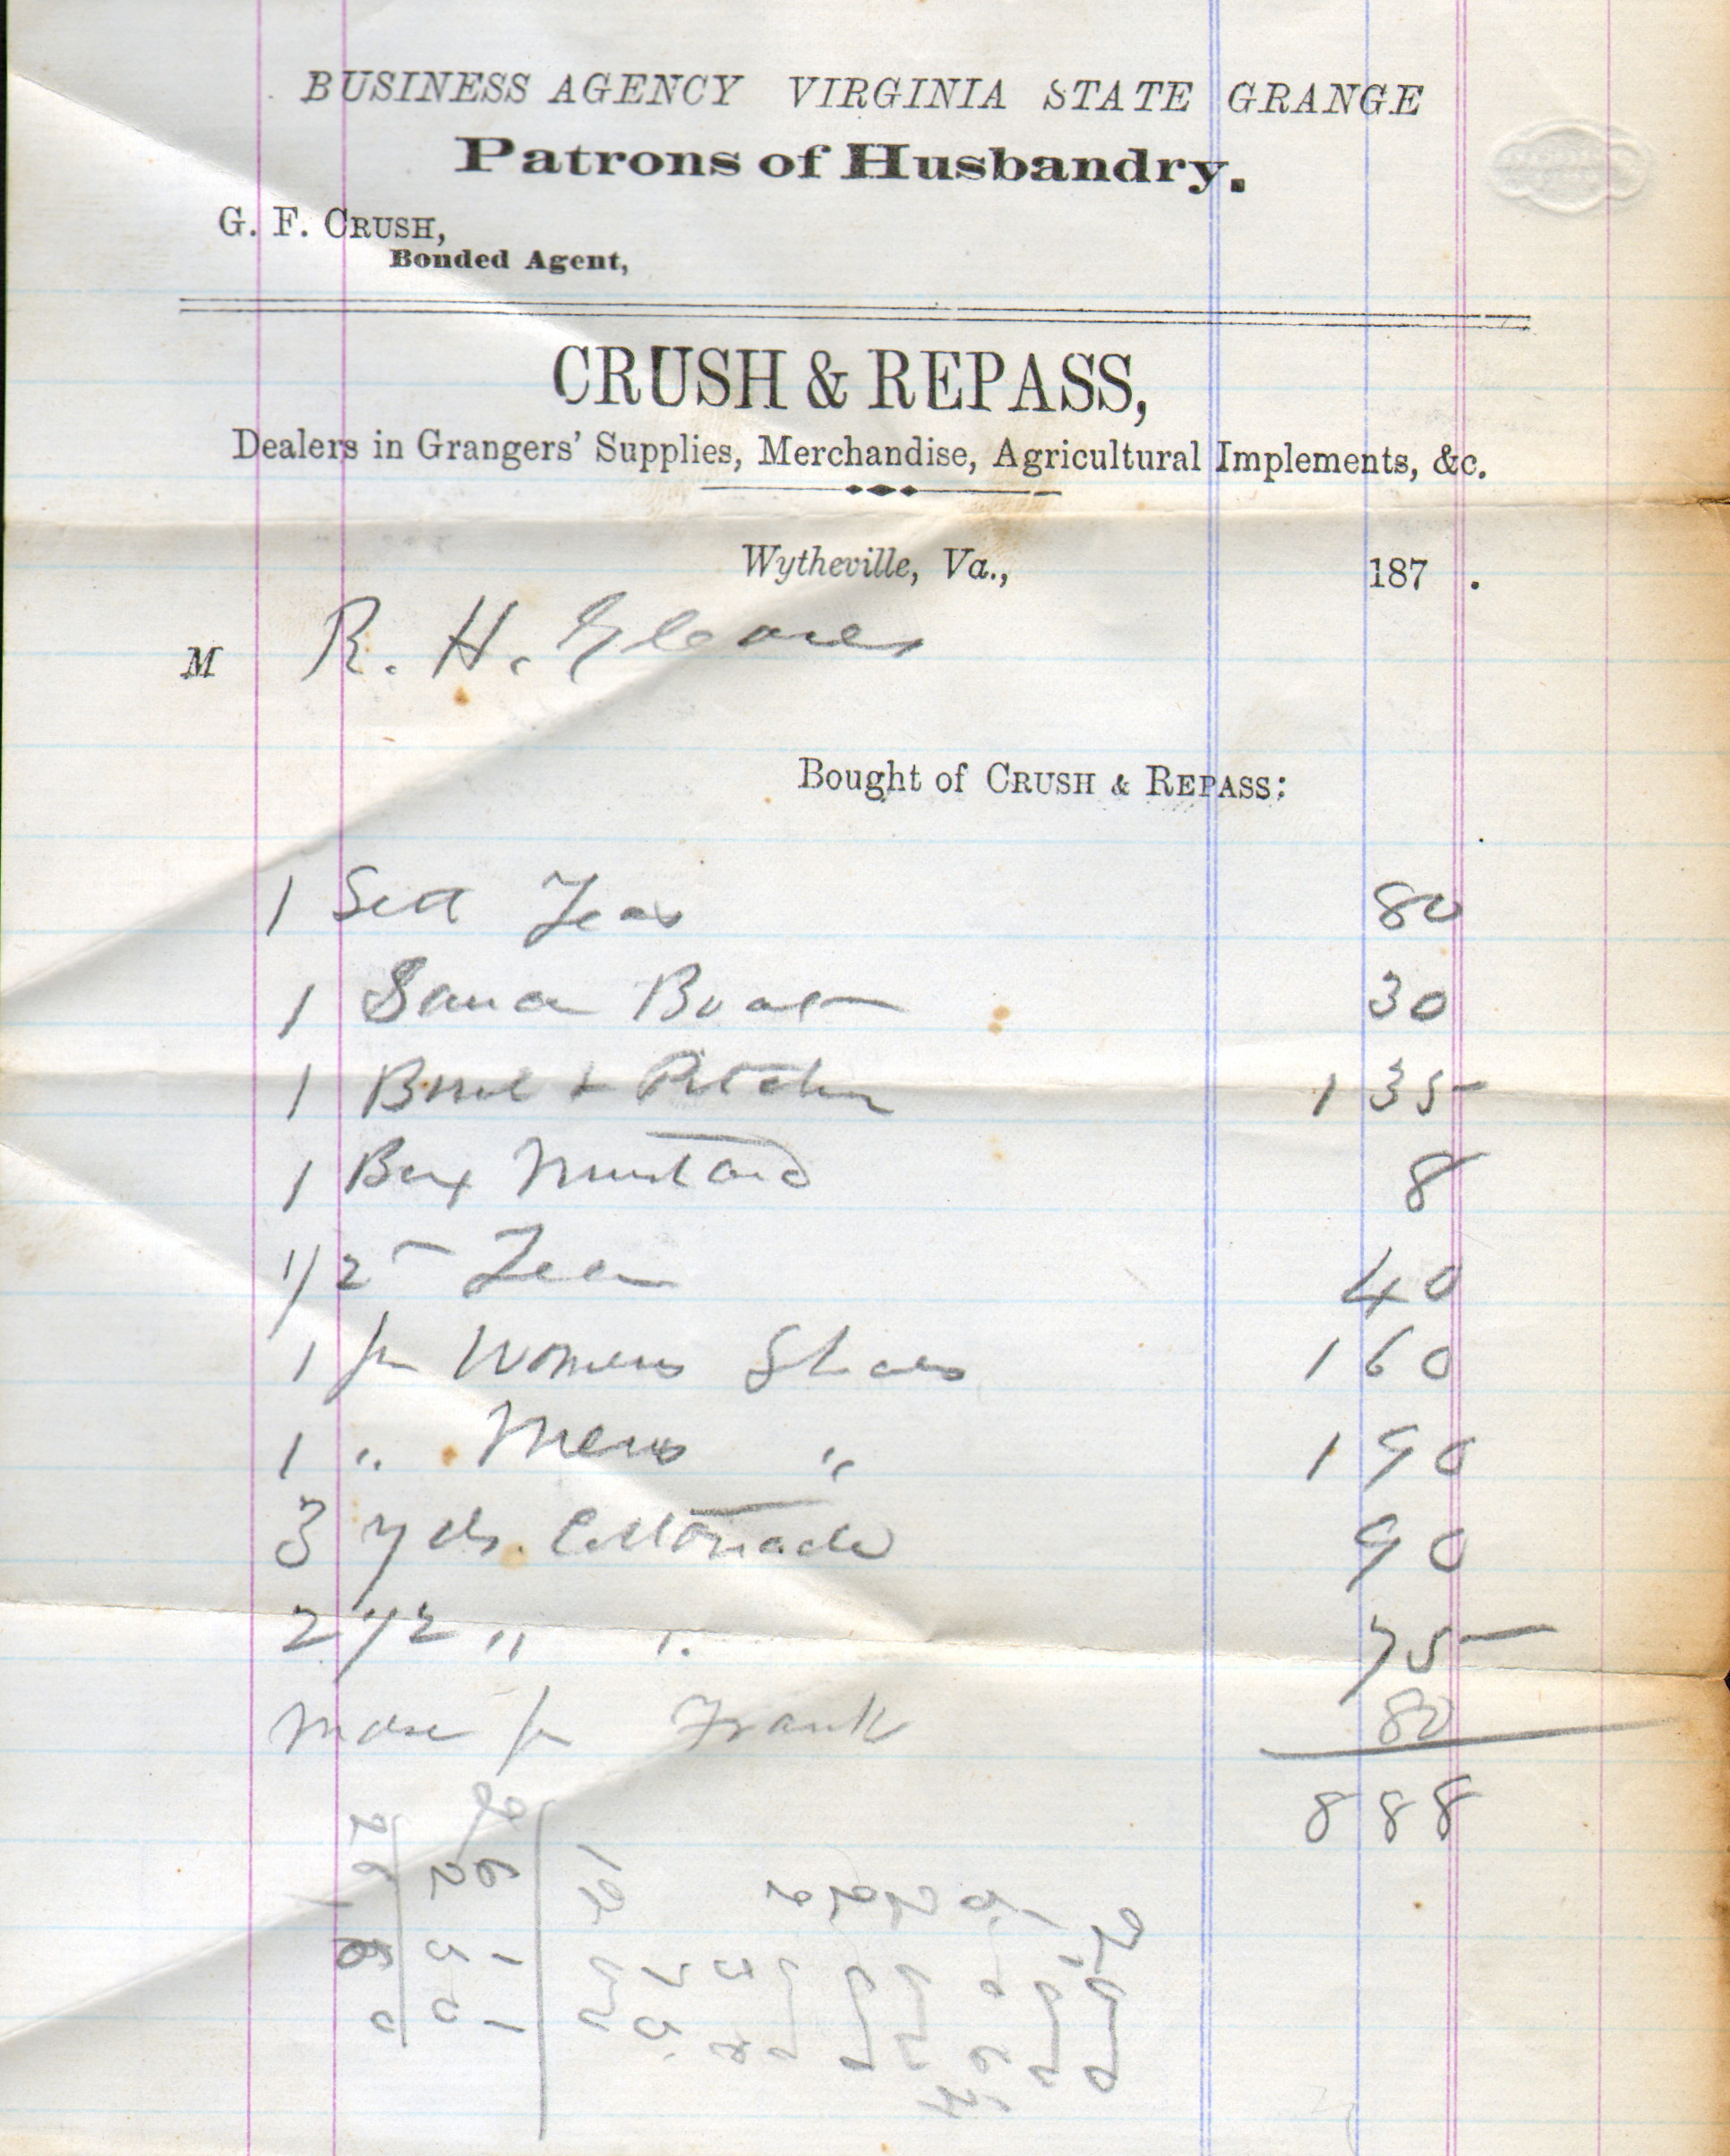 BUSINESS AGENCY VIRGINIA STATE GRANGE
Patrons of Husbandry.
G. F. CRUSH,
Bonded Agent,
CRUSH & REPASS,
Dealers in Grangers' Supplies, Merchandise, Agricultural Implements, &c.
Wytheville, Va., 187 .
M R. H. Gleaves
Bought of CRUSH & REPASS:
1 Sett Teas 80
1 Sauce Boat 30
1 Bowl & Pitcher 1 35
1 Box Mustard 8
1/2 Tea 40
1 pr Womens Shoes 1 60
1 " Mens " 1 90
3 yds. Cottonade 90
2 1/2 " " 75
Mdse for Frank 80
8 88